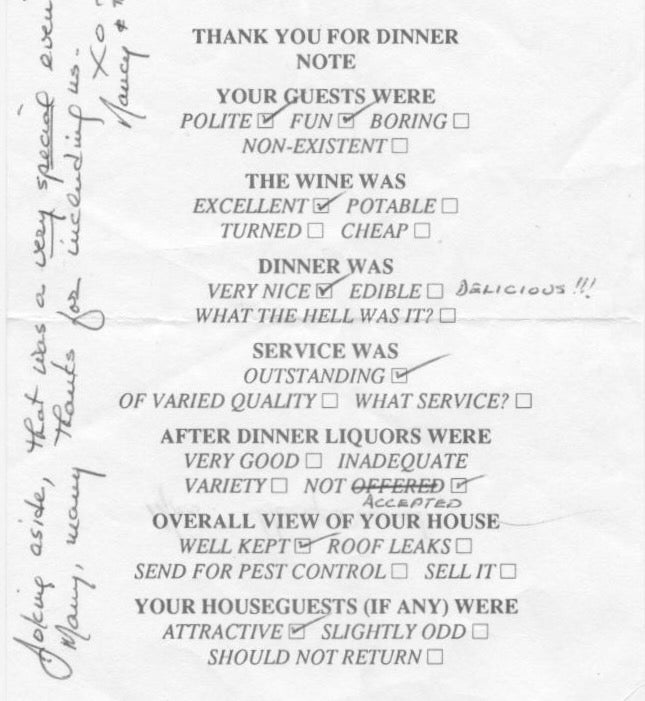 THANK YOU FOR DINNER
NOTE
YOUR GUESTS WERE
POLITE ☑ FUN ☑ BORING ☐
NON-EXISTENT ☐
THE WINE WAS
EXCELLENT ☑ POTABLE ☐
TURNED ☐ CHEAP ☐
DINNER WAS
VERY NICE ☑ EDIBLE ☐ DELICIOUS!!!
WHAT THE HELL WAS IT? ☐
SERVICE WAS
OUTSTANDING ☑
OF VARIED QUALITY ☐ WHAT SERVICE? ☐
AFTER DINNER LIQUORS WERE
VERY GOOD ☐ INADEQUATE
VARIETY ☐ NOT OFFERED ☑
ACCEPTED
OVERALL VIEW OF YOUR HOUSE
WELL KEPT ☑ ROOF LEAKS ☐
SEND FOR PEST CONTROL ☐ SELL IT ☐
YOUR HOUSEGUESTS (IF ANY) WERE
ATTRACTIVE ☑ SLIGHTLY ODD ☐
SHOULD NOT RETURN ☐
Joking aside, that was a very special even
Many, many thanks for including us.
XO
Nancy &